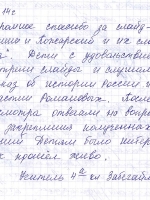 14 г
громное спасибо за слайд-
и Кокарский и их сл
Дети с удовольствие
трели слайды и слушали
каз об истории России и
астии Романовых. После
смотра отвечали на вопро
закрепили полученных
Детям было интере
к прошёл живо.
Учитель 4а кл Забегаева